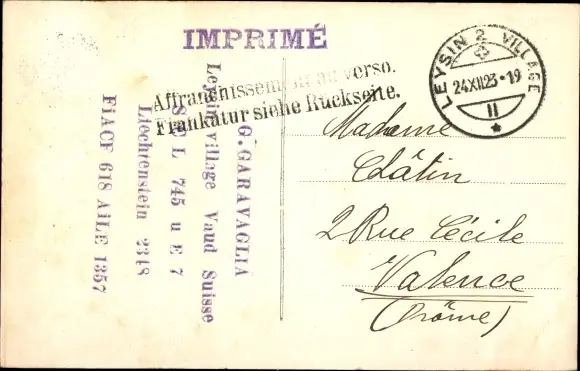 IMPRIMÉ
Affranchissement au verso.
Frankatur siehe Rückseite.
LEYSIN 2 VILLAGE
24XII23•19
II
G. GARAVAGLIA
Leysin village Vaud Suisse
L 745 u E 7
Liechtenstein 2348
FiACF 618 AiLE 1357
Madame
Clâtin
2 Rue Cécile
Valence
(Drôme)